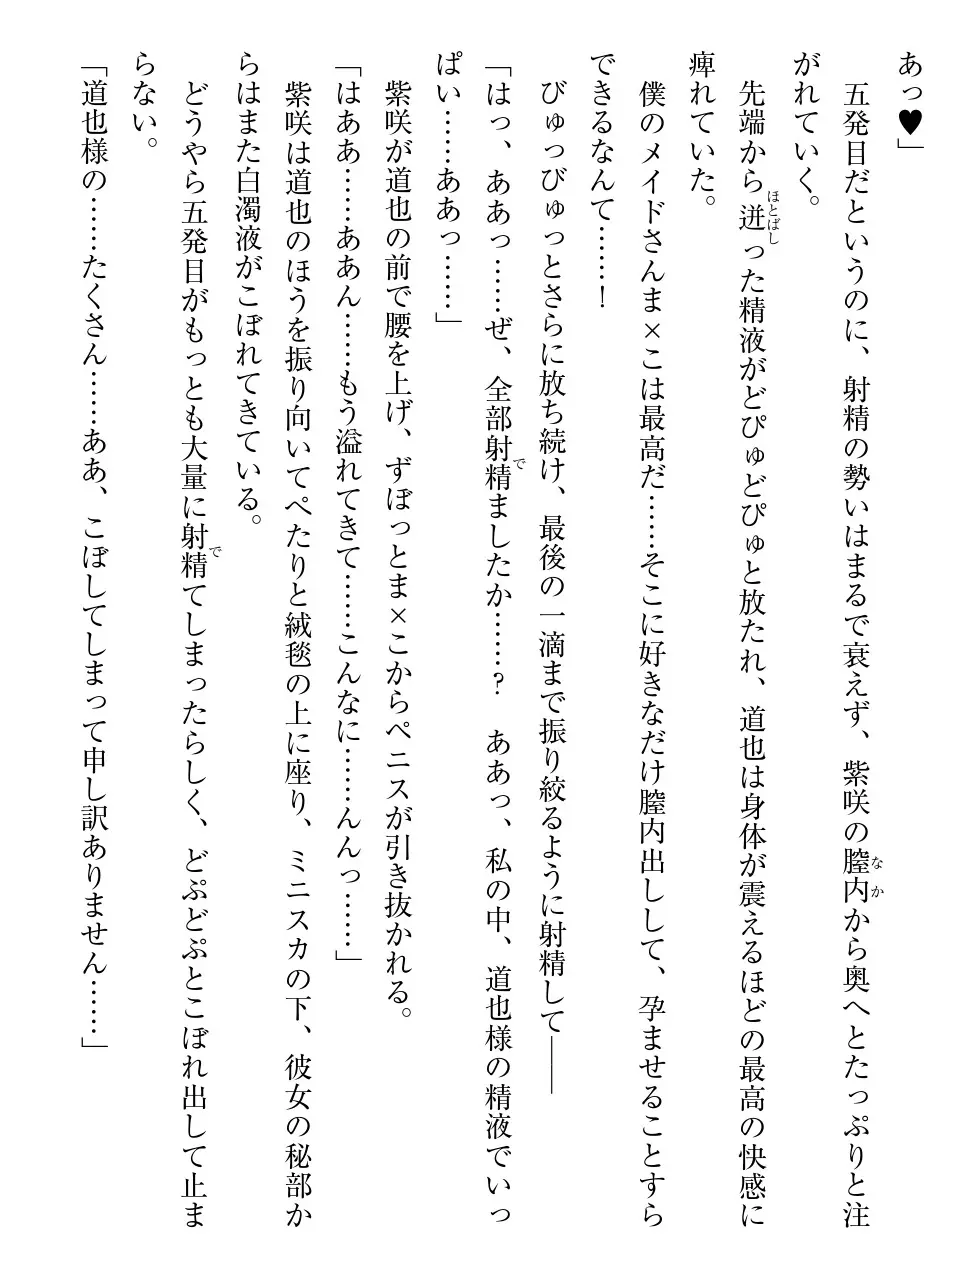 あっ♥」
なか
五発目だというのに、射精の勢いはまるで衰えず、紫咲の膣内から奥へとたっぷりと注
がれていく。
ほとばし
先端から迸った精液がどぴゅどぴゅと放たれ、道也は身体が震えるほどの最高の快感に
痺れていた。
僕のメイドさんま×こは最高だ……そこに好きなだけ膣内出しして、孕ませることすら
できるなんて……！
びゅっびゅっとさらに放ち続け、最後の一滴まで振り絞るように射精して――
で
「はっ、ああっ……ぜ、全部射精ましたか……？　ああっ、私の中、道也様の精液でいっ
ぱい……ああっ……」
紫咲が道也の前で腰を上げ、ずぼっとま×こからペニスが引き抜かれる。
「はああ……ああん……もう溢れてきて……こんなに……んんっ……」
紫咲は道也のほうを振り向いてぺたりと絨毯の上に座り、ミニスカの下、彼女の秘部か
らはまた白濁液がこぼれてきている。
で
どうやら五発目がもっとも大量に射精てしまったらしく、どぷどぷとこぼれ出して止ま
らない。
「道也様の……たくさん……ああ、こぼしてしまって申し訳ありません……」